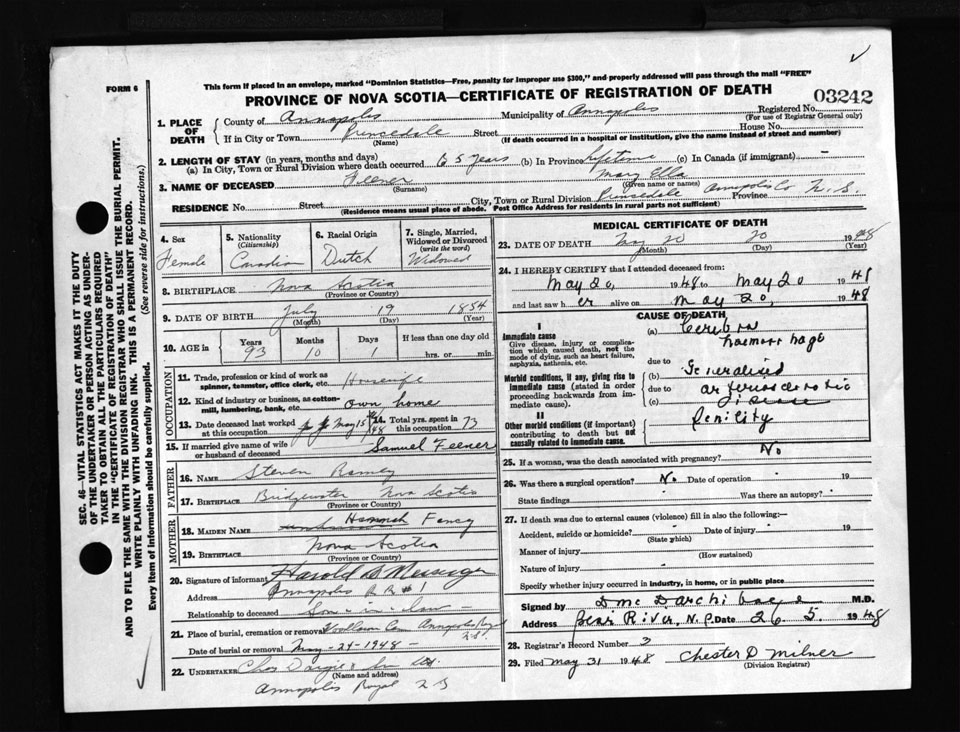 This form if placed in an envelope, marked "Dominion Statistics—Free, penalty for improper use $300," and properly addressed will pass through the mail "FREE"
FORM 6
PROVINCE OF NOVA SCOTIA—CERTIFICATE OF REGISTRATION OF DEATH
03242
Registered No.
(For use of Registrar General only)
1. PLACE OF DEATH
County of Annapolis Municipality of Annapolis
If in City or Town Princedale Street House No.
(Name) (If death occurred in a hospital or institution, give the name instead of street and number)
2. LENGTH OF STAY (in years, months and days)
(a) In City, Town or Rural Division where death occurred 65 years (b) In Province lifetime (c) In Canada (if immigrant) —
3. NAME OF DECEASED Feener Mary Ella
(Surname) (Given name or names)
RESIDENCE No. Street City, Town or Rural Division Princedale Province Annapolis Co N.S.
(Residence means usual place of abode. Post Office Address for residents in rural parts not sufficient)
4. Sex Female
5. Nationality (Citizenship) Canadian
6. Racial Origin Dutch
7. Single, Married, Widowed or Divorced (write the word) Widowed
8. BIRTHPLACE Nova Scotia
(Province or Country)
9. DATE OF BIRTH July 19 1854
(Month) (Day) (Year)
10. AGE in Years 93 Months 10 Days 1 If less than one day old hrs. or min.
OCCUPATION
11. Trade, profession or kind of work as spinner, teamster, office clerk, etc. Housewife
12. Kind of industry or business, as cotton-mill, lumbering, bank, etc. own home
13. Date deceased last worked at this occupation May 15th/48
14. Total yrs. spent in this occupation 73
15. If married give name of wife or husband of deceased Samuel Feener
FATHER
16. NAME Steven Ramey
17. BIRTHPLACE Bridgewater Nova Scotia
(Province or Country)
MOTHER
18. MAIDEN NAME Hannah Fancy
19. BIRTHPLACE Nova Scotia
(Province or Country)
20. Signature of informant Harold D Messenger
Address Annapolis R R #
Relationship to deceased Son-in-law
21. Place of burial, cremation or removal Woodlawn Cem Annapolis Royal N.S.
Date of burial or removal May-24-1948-
22. UNDERTAKER Chas Dargie & Son Ltd.
(Name and address)
Annapolis Royal N S
MEDICAL CERTIFICATE OF DEATH
23. DATE OF DEATH May 20 20 1948
(Month) (Day) (Year)
24. I HEREBY CERTIFY that I attended deceased from:
May 20, 1948 to May 20 1948
and last saw her alive on May 20, 1948
CAUSE OF DEATH
I
Immediate cause
Give disease, injury or complication which caused death, not the mode of dying, such as heart failure, asphyxia, asthenia, etc.
(a) Cerebral haemorrhage
due to
Morbid conditions, if any, giving rise to immediate cause (stated in order proceeding backwards from immediate cause).
(b) Generalised
due to arteriosclerotic
(c) disease
II
Other morbid conditions (if important) contributing to death but not causally related to immediate cause.
Senility
25. If a woman, was the death associated with pregnancy? No
26. Was there a surgical operation? No Date of operation 19
State findings Was there an autopsy?
27. If death was due to external causes (violence) fill in also the following:—
Accident, suicide or homicide? Date of injury 19
(State which)
Manner of injury
(How sustained)
Nature of injury
Specify whether injury occurred in industry, in home, or in public place
Signed by M.D.
Address Bear River, N.S. Date 26.5. 1948
28. Registrar's Record Number 3
29. Filed May 31 1948 Chester D Milner
(Division Registrar)
SEC. 46—VITAL STATISTICS ACT MAKES IT THE DUTY
OF THE UNDERTAKER OR PERSON ACTING AS UNDERTAKER TO OBTAIN ALL THE PARTICULARS REQUIRED
IN THE "CERTIFICATE OF REGISTRATION OF DEATH"
AND TO FILE THE SAME WITH THE DIVISION REGISTRAR WHO SHALL ISSUE THE BURIAL PERMIT.
WRITE PLAINLY WITH UNFADING INK. THIS IS A PERMANENT RECORD.
Every item of information should be carefully supplied. (See reverse side for instructions.)